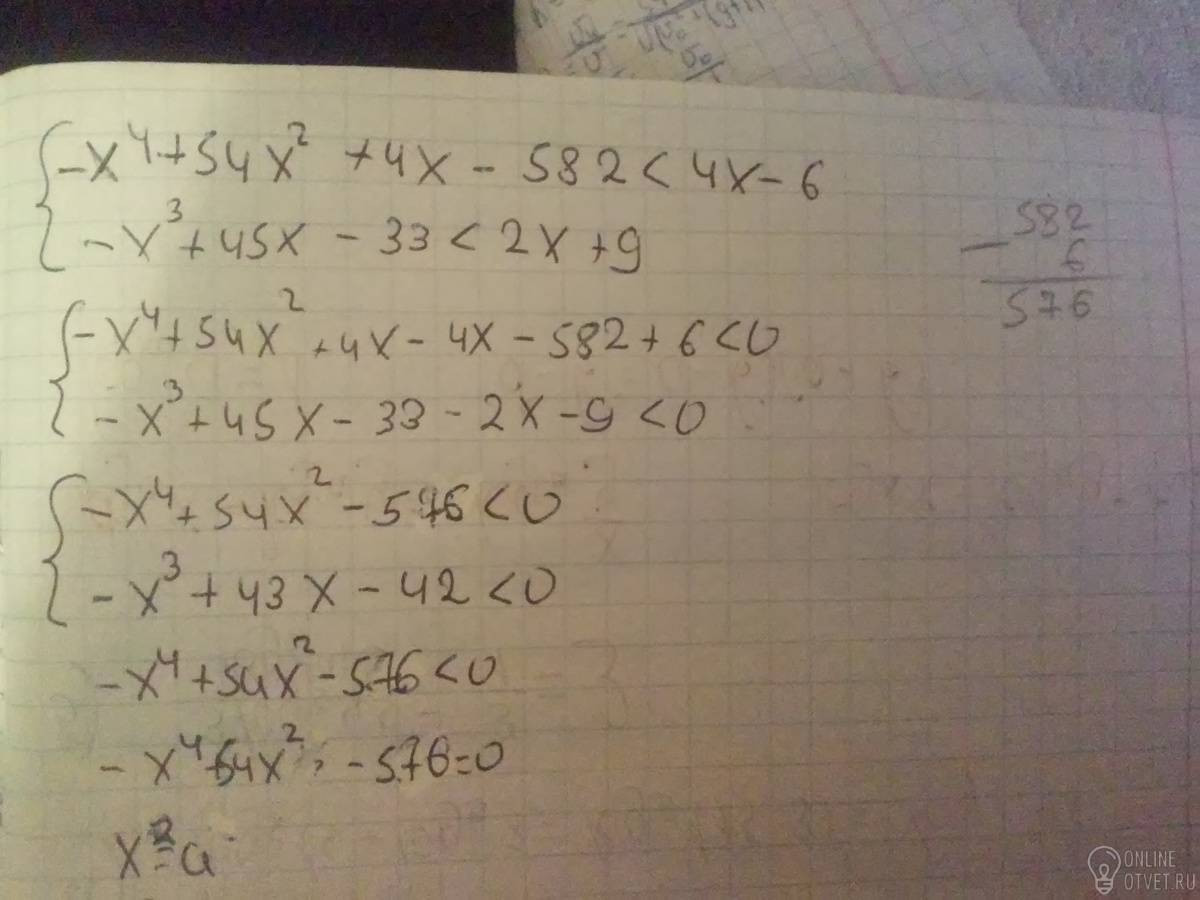 -x⁴+54x² +4x - 582 < 4x - 6
-x³+45x - 33 < 2x + 9
-x⁴+54x² +4x - 4x - 582 + 6 < 0
-x³+45x - 33 - 2x - 9 < 0
-x⁴+54x² - 576 < 0
-x³+43x - 42 < 0
-x⁴+54x² - 576 < 0
-x⁴+54x² - 576 = 0
x² = a
582
- 6
576
ONLINE
OTVET.RU